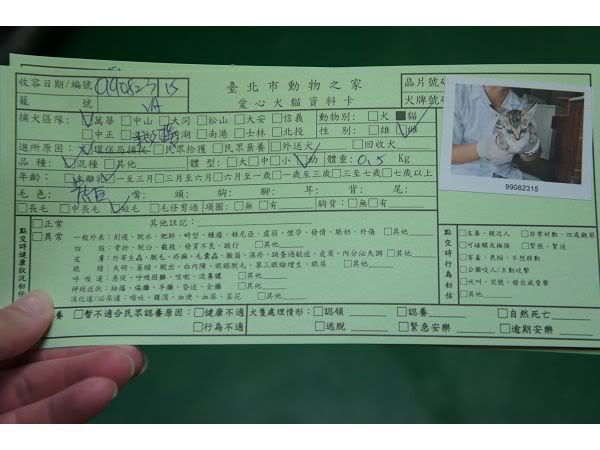 臺北市動物之家
愛心犬貓資料卡
收容日期/編號 99082315
籠 號
晶片號碼
犬牌號碼
捕犬區隊: □萬華 □中山 □大同 □松山 □大安 □信義 動物別: □犬 ■貓
□中正 湖 □南港 □士林 □北投 性 別: □雄 □雌
進所原因: □環保局捕捉 □民眾拾獲 □民眾棄養 □外送犬 □回收犬
品 種: □混種 □其他 體 型: □大 □中 □小 □幼 體重: 0.5 Kg
年齡: □未離乳 □一至三月 □三月至六月 □六月至一歲 □一歲至三歲 □三至七歲 □七歲以上
毛 色: 嘴: 頭: 胸: 腳: 耳: 背: 尾:
□長毛 □中長毛 □短毛 □毛修剪過 項圈: □無 □有 胸背: □無 □有
點交時健康狀況初估
□正常 其他註記:
□異常 一般外表: □削瘦、脫水、肥胖、畸型、腫瘤、赫尼亞、虛弱、懷孕、發情、脹奶、外傷 □其他
四 肢: 骨折、脫臼、截肢、發育不良、跛行 □其他
皮 膚: 外寄生蟲、脫毛、疥癬、毛囊蟲、黴菌、濕疹、跳蚤過敏症、皮屑、內分泌失調 □其他
眼 睛: 失明、萎縮、脫出、白內障、眼瞼脫毛、第三眼瞼增生、眼屎 □其他
呼吸道: 急促、呼吸困難、咳嗽、流鼻膿 □其他
神經症狀: 抽搐、偏癱、半癱、昏迷、全癱 □其他
消化道/泌尿道: 嘔吐、腹瀉、血便、血尿 □其他
點交時行為初估
□友善、親近人 □非常好動、四處觀察
□可碰觸及撫摸 □緊張、緊迫
□害羞、畏縮、不想移動
□企圖咬人/主動攻擊
□吠叫、低吼、發出威脅聲
□其他
養 □暫不適合民眾認養原因: □健康不適 犬隻處理情形: □認領 □認養 □自然死亡
□行為不適 □逃脫 □緊急安樂 □逾期安樂
99082315